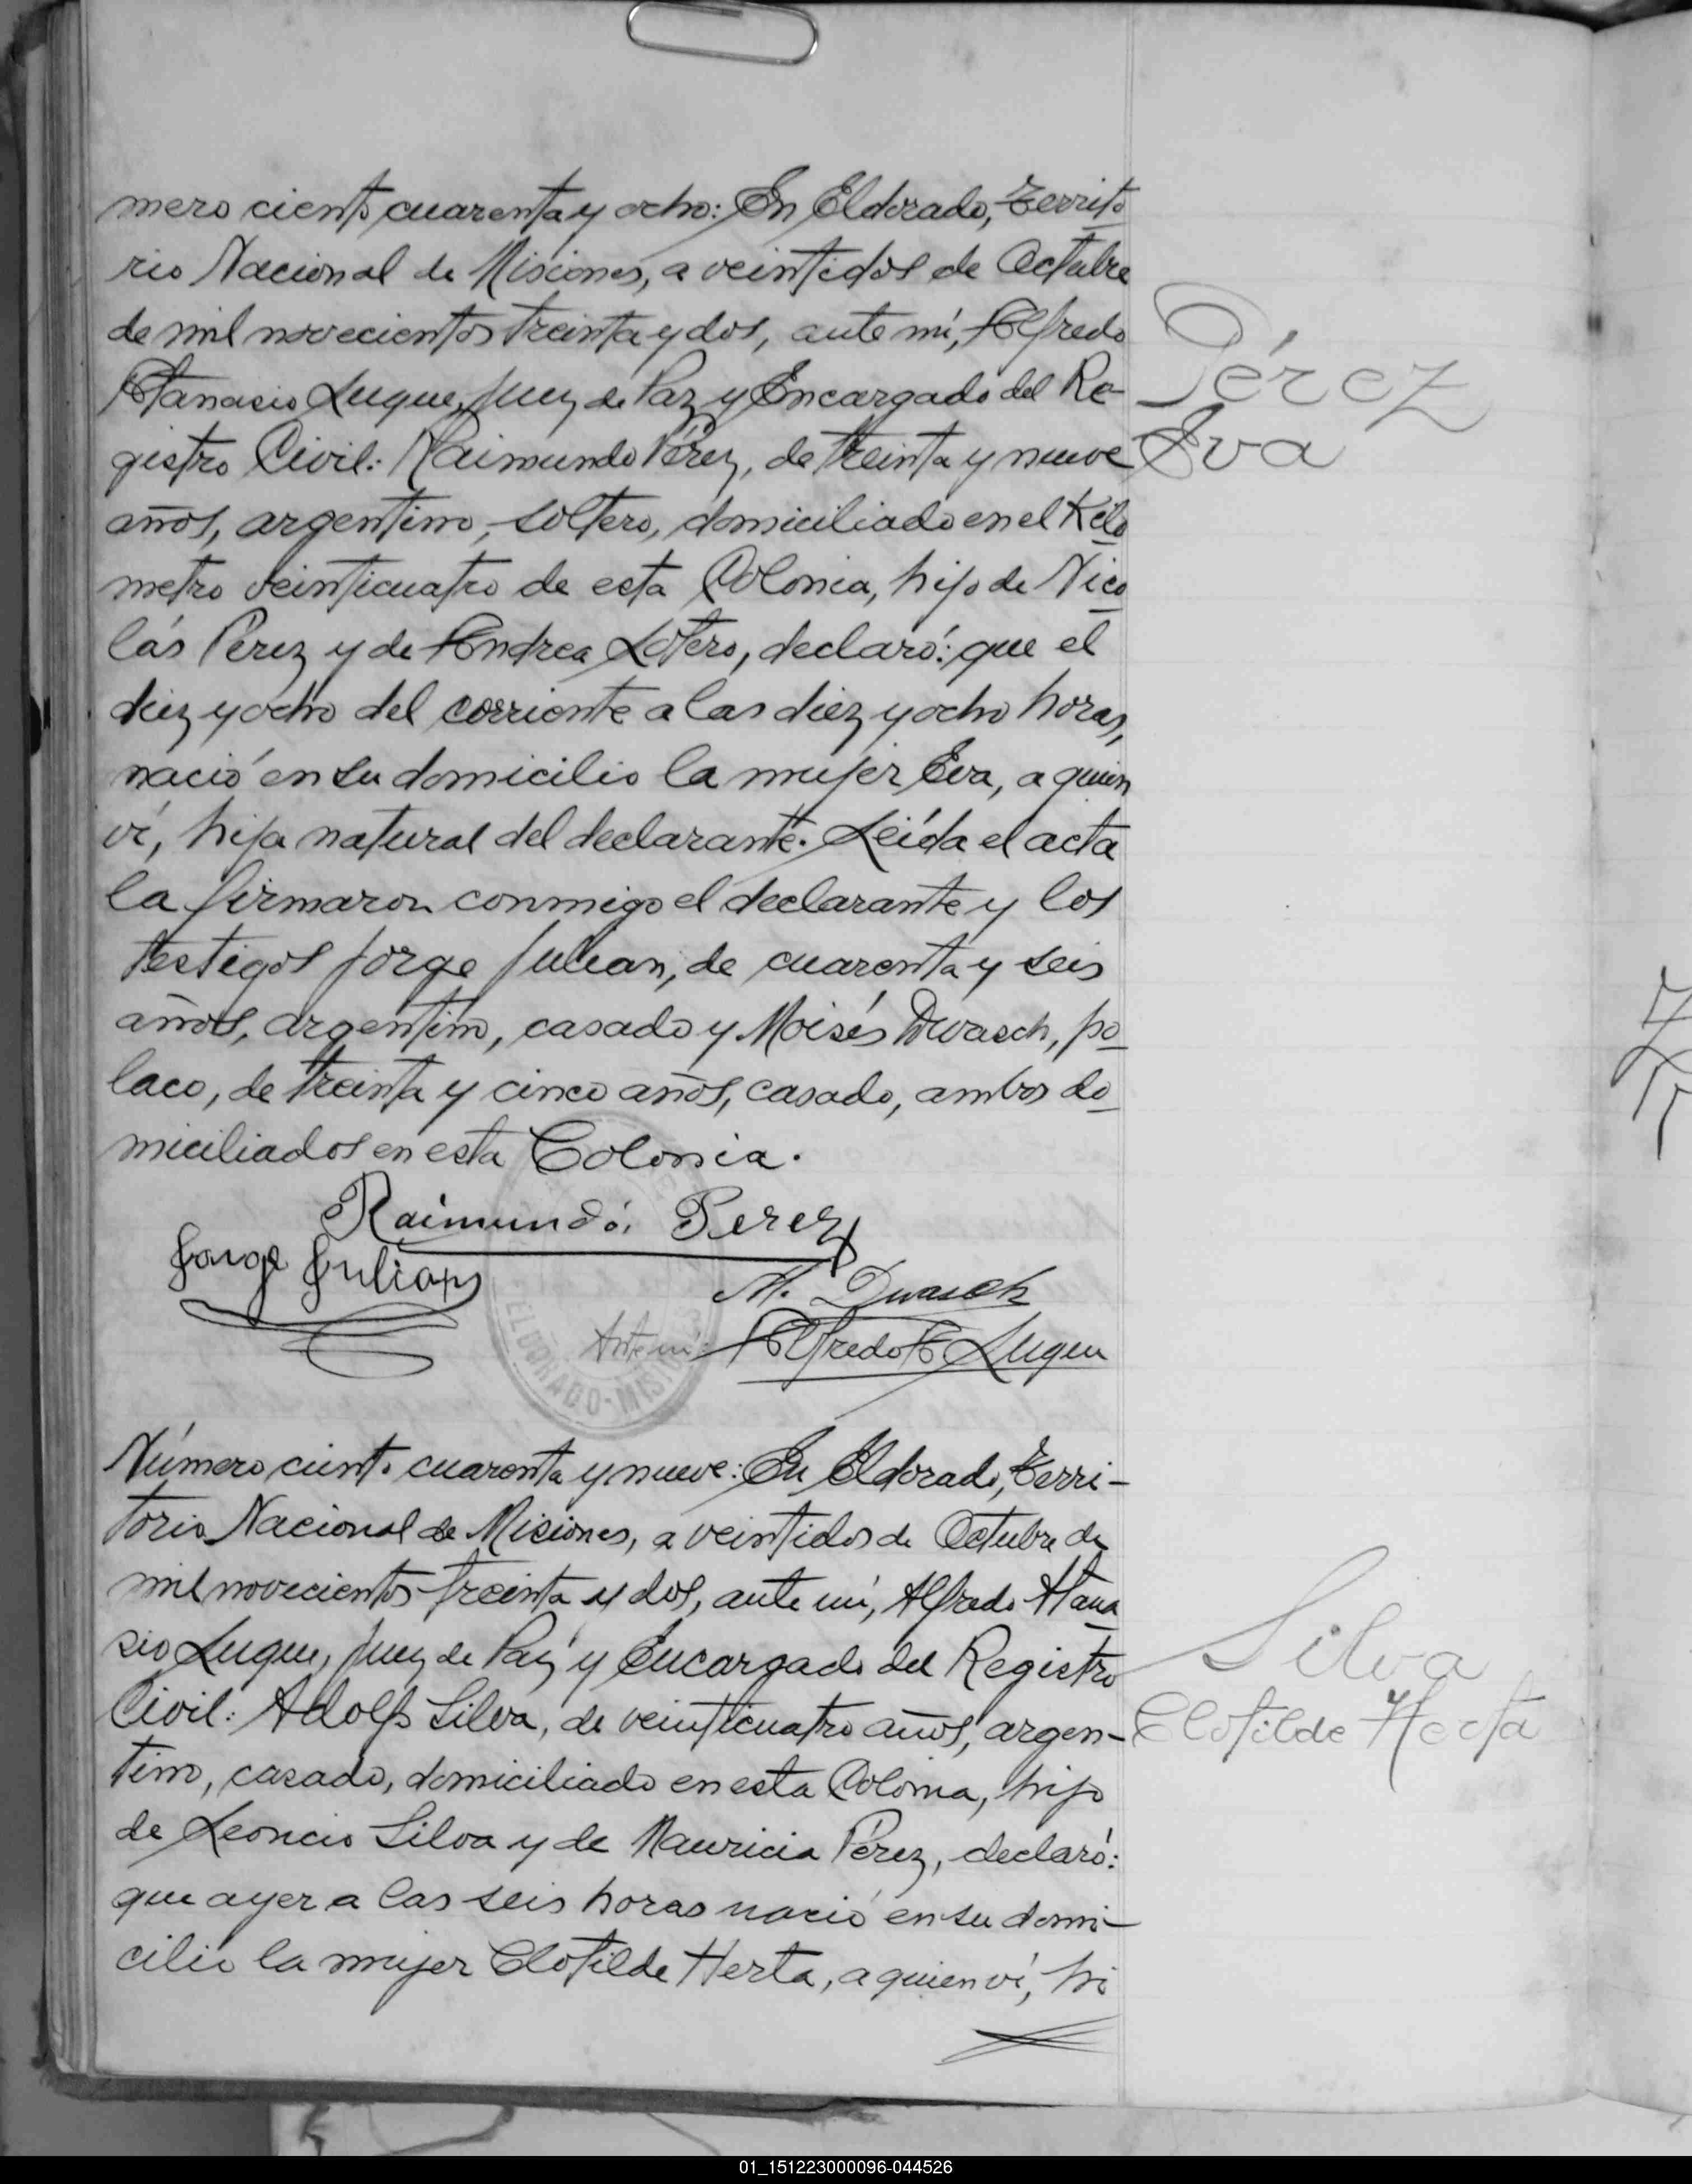 mero ciento cuarenta y ocho: En Eldorado, Territo
rio Nacional de Misiones, a veintidos de Octubre
de mil novecientos treinta y dos, ante mí, Alfredo
Atanasio Luque, Juez de Paz y Encargado del Re-
gistro Civil: Raimundo Pérez, de treinta y nueve
años, argentino, soltero, domiciliado en el Kilo
metro veinticuatro de esta Colonia, hijo de Nico
lás Pérez y de Andrea Sotero, declaró: que el
diez y ocho del corriente a las diez y ocho horas,
nació en su domicilio la mujer Eva, a quien
ví, hija natural del declarante. Leída el acta
la firmaron conmigo el declarante y los
testigos Jorge Julian, de cuarenta y seis
años, argentino, casado y Moisés Dwasch, po
laco, de treinta y cinco años, casado, ambos do
miciliados en esta Colonia.
Pérez
Eva
Raimundo Perez
Jorge Julian
M. Dwasch
Ante mí: Alfredo A Luque
ELDORADO-MISIONES
Número ciento cuarenta y nueve: En Eldorado, Terri-
torio Nacional de Misiones, a veintidos de Octubre de
mil novecientos treinta y dos, ante mí, Alfredo Atana
sio Luque, Juez de Paz y Encargado del Registro
Civil: Adolfo Silva, de veinticuatro años, argen-
tino, casado, domiciliado en esta Colonia, hijo
de Leoncio Silva y de Mauricia Pérez, declaró:
que ayer a las seis horas nació en su domi-
cilio la mujer Clotilde Herta, a quien ví, hi
Silva
Clotilde Herta
01_151223000096-044526